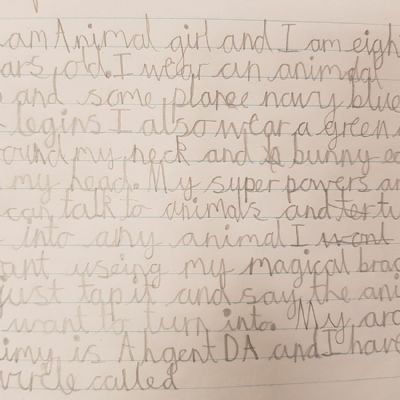 am Animal girl and I am eigh
ars old. I wear an animal
and some plane navy blue
legins I also wear a green
ound my neck and bunny ea
my head. My superpowers ar
can talk to animals and tu
into any animal I wont
ant useing my magical brac
just tap it and say the ani
want to turn into. My arc
imy is Ahgent DA and I have
vircle called